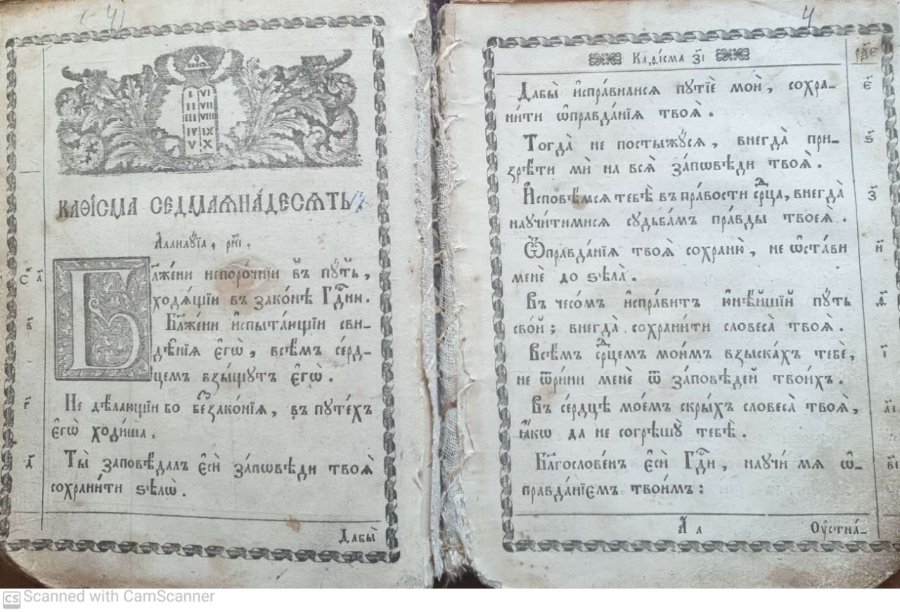 I VI
II VII
III VIII
IV IX
V X
КАѲІСМА СЕДМАѦНА́ДЕСѦТЬ
Аллилꙋ́їа, рні,
Бл҃же́ни непоро́чнїи въ пꙋ́ть,
ходѧ́щїи въ зако́нѣ Гд҇ни.
Бл҃же́ни и҆спыта́ющїи сви-
дѣ́нїѧ є҆гѡ̀, всѣ́мъ се́рд-
цемъ взы́щꙋтъ є҆гѡ̀.
Не дѣ́лающїи бо беззако́нїѧ, въ пꙋте́хъ
є҆гѡ̀ ходи́ша.
Ты̀ заповѣ́далъ є҆сѝ за́пѡвѣди твоѧ̀
сохрани́ти ѕѣлѡ̀.
Дабы̀
4
Каѳі́сма з҃і
Дабы̀ и҆спра́вилисѧ пꙋтїѐ моѝ, сохра-
ни́ти ѡ҆правда́нїѧ твоѧ̀.
Тогда̀ не постыжꙋ́сѧ, внегда̀ при-
зрѣ́ти мѝ на всѧ̀ за́пѡвѣди твоѧ̀.
И҆сповѣ́мсѧ тебѣ̀ въ пра́вости ср҃ца, внегда̀
наꙋчи́тимисѧ сꙋдьба́мъ пра́вды твоеѧ̀.
Ѡ҆правда́нїѧ твоѧ̀ сохраню̀, не ѡ҆ста́ви
менѐ до ѕѣла̀.
Въ чесо́мъ и҆спра́витъ ю҆нѣ́йшїй пꙋ́ть
сво́й; внегда̀ сохрани́ти словеса̀ твоѧ̀.
Всѣ́мъ ср҃цемъ мои́мъ взыска́хъ тебѐ,
не ѿри́ни менѐ ѿ за́повѣдей твои́хъ.
Въ се́рдцѣ мое́мъ скры́хъ словеса̀ твоѧ̀,
ꙗ҆́кѡ да не согрѣшꙋ̀ тебѣ̀.
Бл҃гослове́нъ є҆сѝ Гд҇и, наꙋчи́ мѧ ѡ҆-
правда́нїємъ твои̑мъ:
А҃ а
Оу҆стна́-
CS Scanned with CamScanner